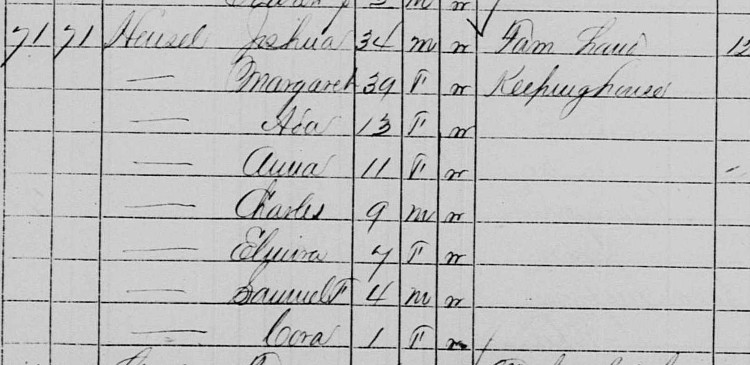 3 m w
71 71 Hensel Joshua 34 m w Farm Hand 12
— Margaret 39 F w Keeping house
— Ada 13 F w
— Anna 11 F w
— Charles 9 m w
— Elmira 7 F w
— Samuel F 4 m w
— Cora 1 F w